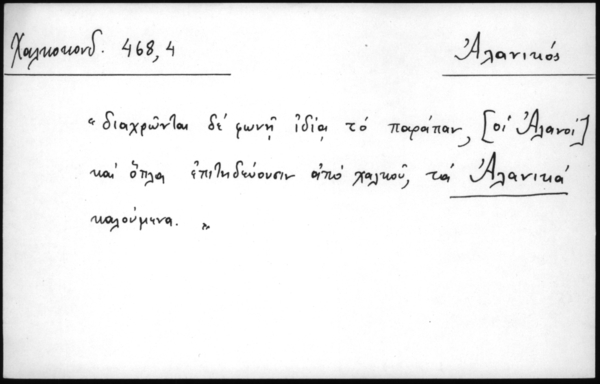 Χαλκοκονδ. 468, 4
Ἀλανικός
"διαχρῶνται δέ φωνῇ ἰδίᾳ τό παράπαν, [οἱ Ἀλανοί]
καί ὅπλα ἐπιτηδεύουσιν ἀπό χαλκοῦ, τά Ἀλανικά
καλούμενα."